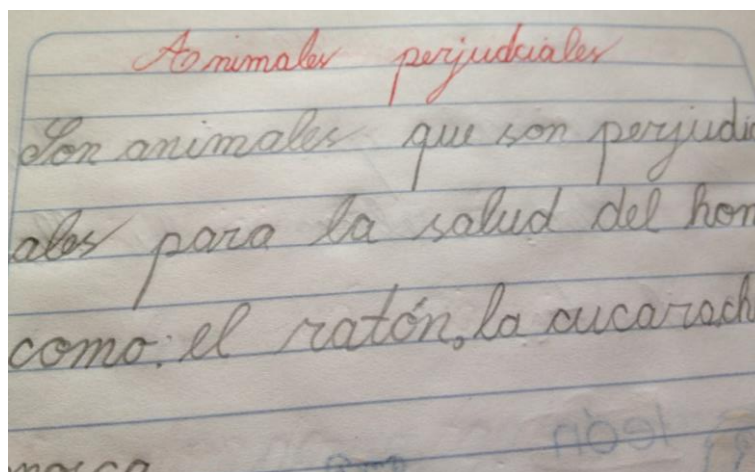 Animales perjudiciales
Son animales que son perjudici
ales para la salud del hom
como: el ratón, la cucarach
mosca